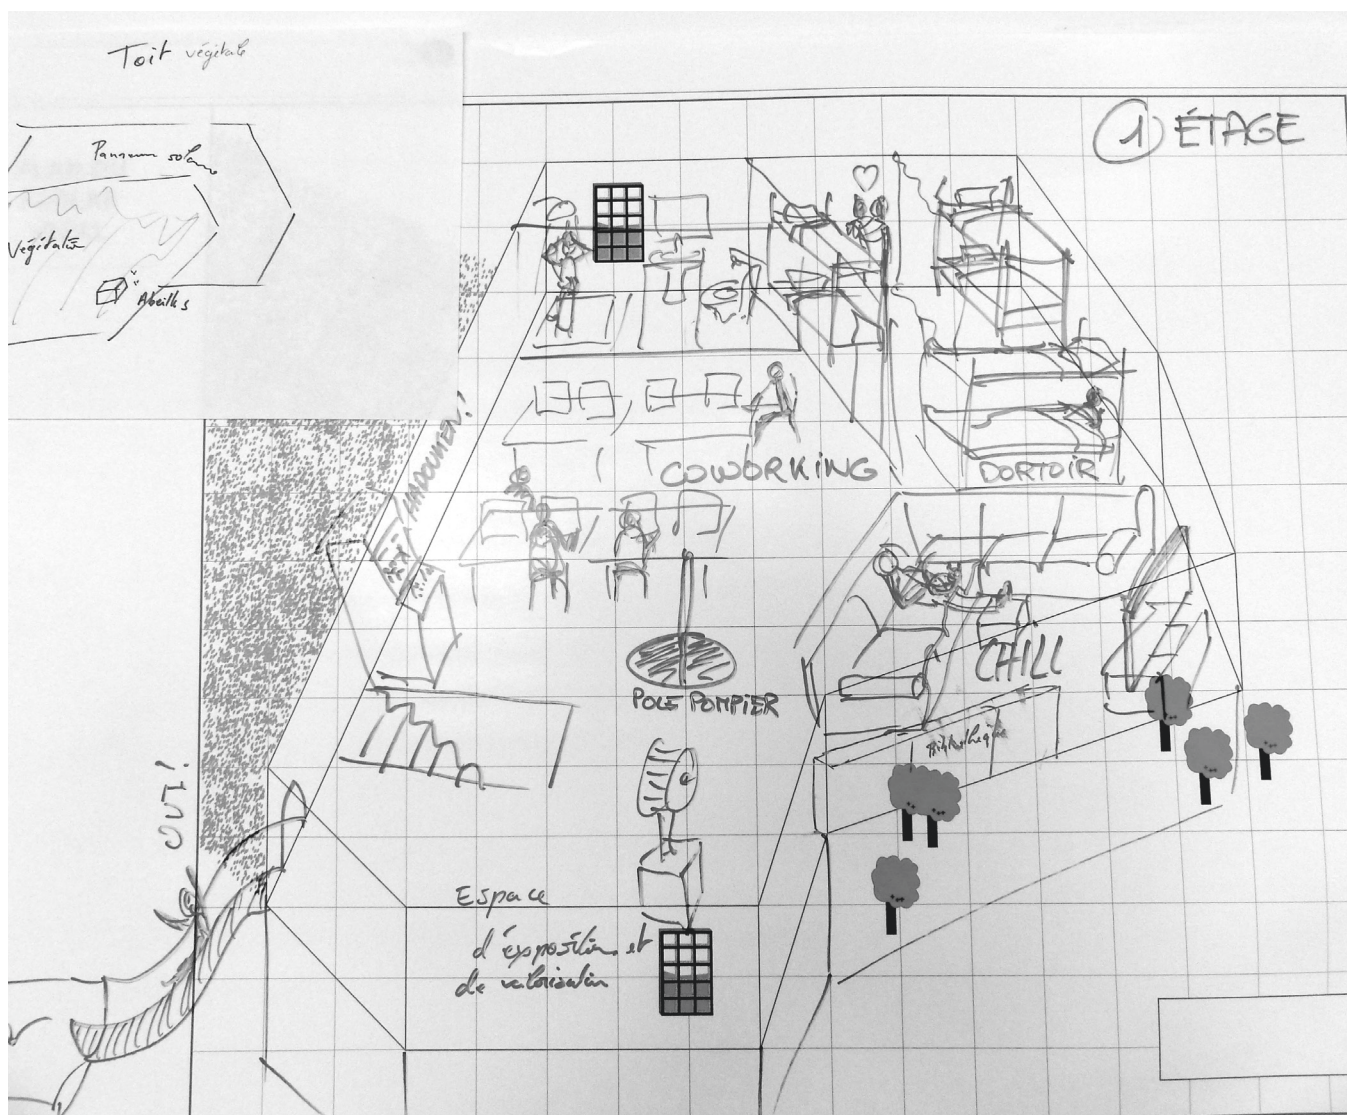 Toit végétale
Panneau solaire
Végétalisé
Abeilles
① ÉTAGE
COWORKING
DORTOIR
CHILL
POLE POMPIER
Bibliothèque
OUT!
Espace
d'éxposition et
de valorisation